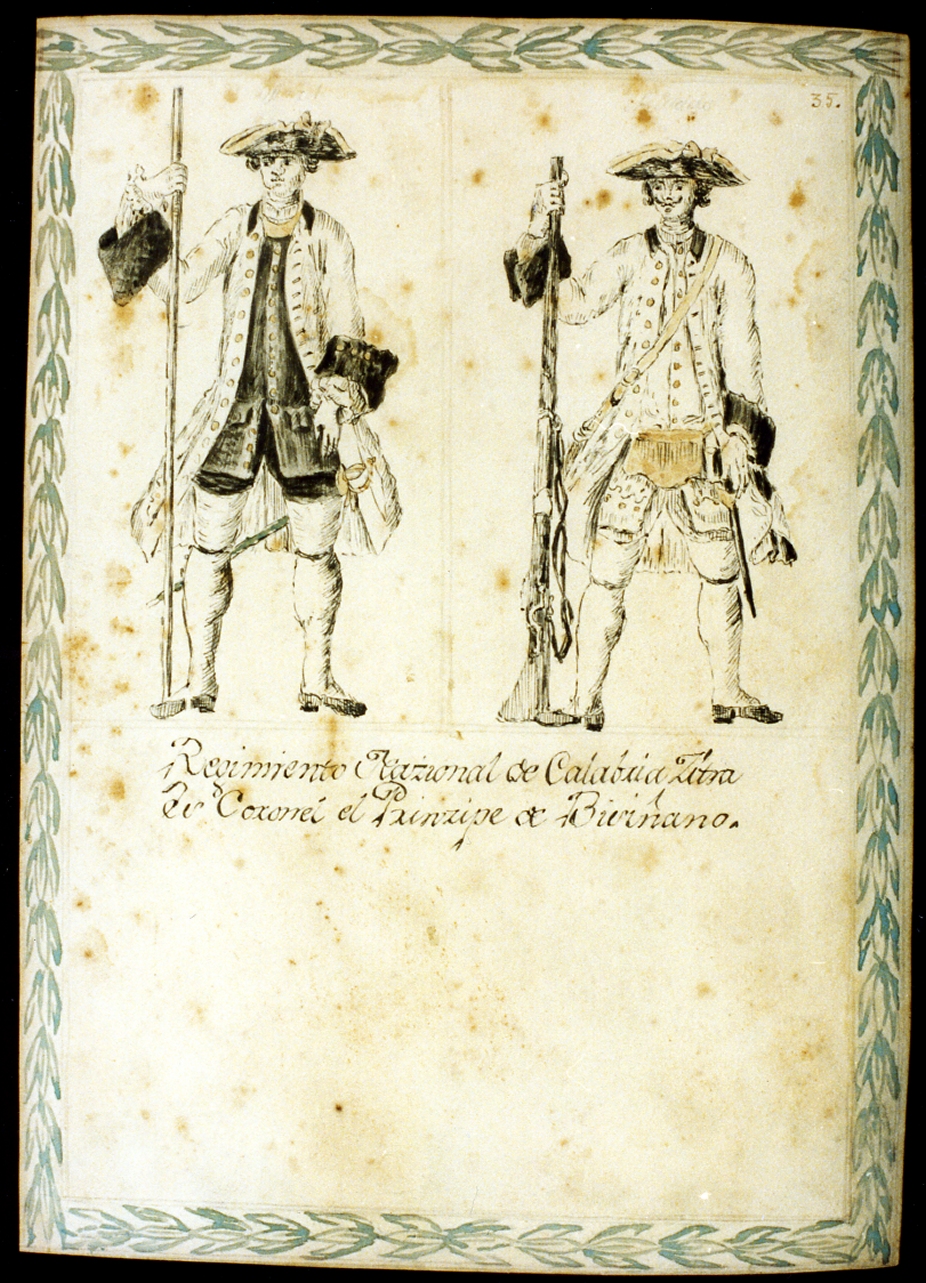 35.
Regimiento Nazional de Calabria Zitra
Su Coronel el Prinzipe de Biviñano.